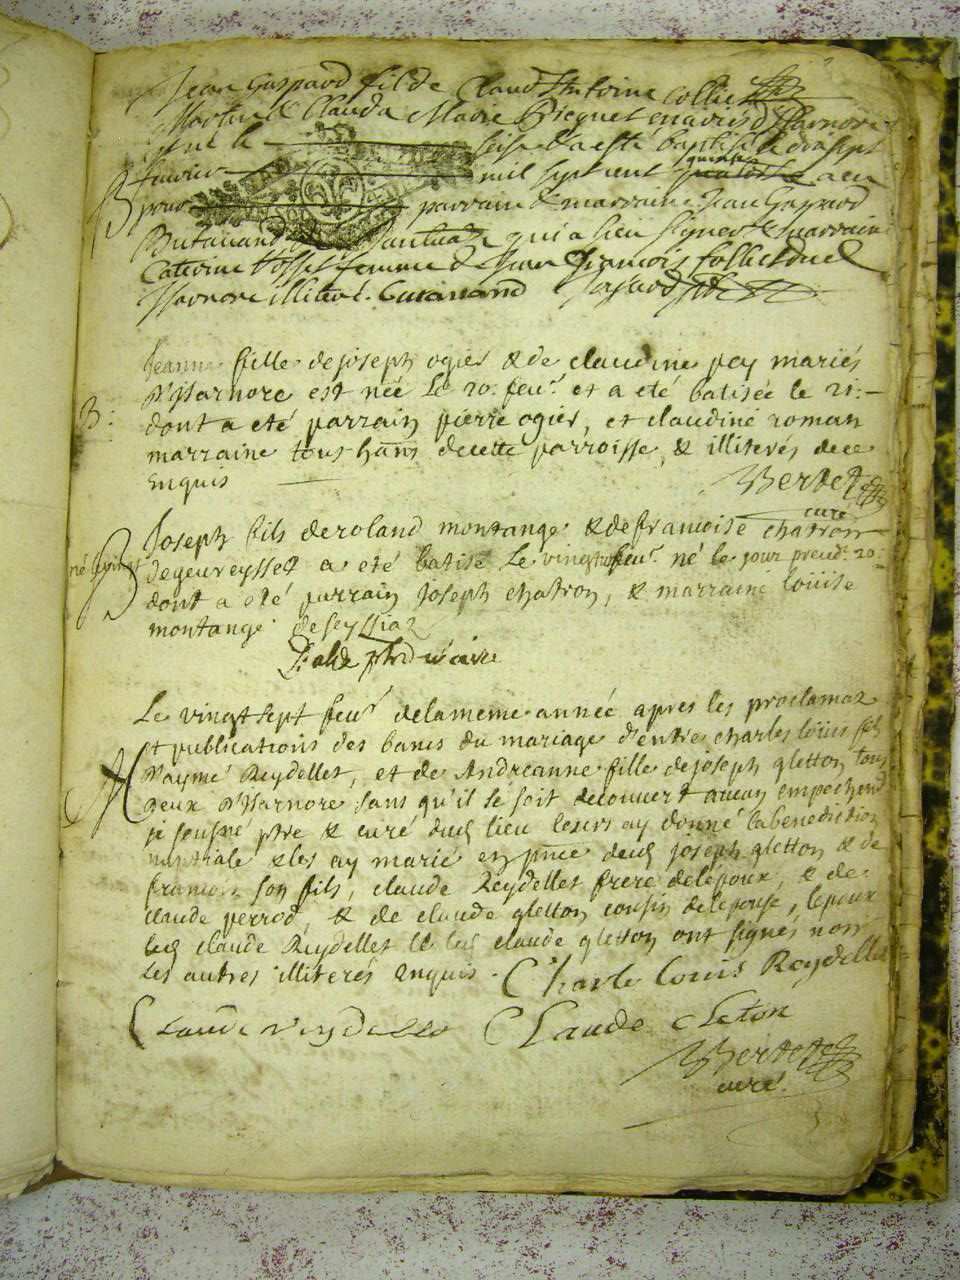 Jean Gaspard fil de Claud Antoine Collie
Martin & Clauda Marie Bicquet mariés d'Isarnore
est né le seise & a esté baptisé le dixsept
fevrier mil sept cent quinse a eu
B
pour parrain & marraine Jean Gaspard
Butavand qui a bien signer & marraine
Caterine femme de Jean François Colliet du
Isarnore illiteré. Butavand
Jeanne fille de joseph ogier & de claudine pey mariés
d'Isarnore est née Le 20. feu.r et a eté batisée le 21.
B.
dont a eté parrain pierre ogier, et claudine roman
marraine tous hans decette parroisse, & illiterés de ce
Enquis
Bertet
curé
Joseph fils de roland montange & de francoise chatron
degeureysset a eté batisé Le vingt feu.r né le jour preud.t 20.
B
dont a eté parrain Joseph chatron, & marraine louise
montange de seyssiaz
vicaire
Le vingt sept feu.r dela meme année apres les proclama
et publications des bancs du mariage d'entre charles louis fils
M
d'aymé Reydellet, et de Andreanne fille de joseph gletton tous
deux d'Isarnore sans qu'il se soit decouuert aucun empechem.t
je soussné ptre & curé dud lieu leurs ay donné la benediction
nuptiale & les ay marié en pnce dud joseph gletton & de
francois son fils, claude Reydellet frere de lepoux, & de
claude perrod, & de claude gletton cousin de lepouse, lepoux
led claude Reydellet & led claude gletton ont signés non
Les autres illiterés enquis. Charle Louis Reydellet
Claude reydellet Claude Cleton
Bertet
curé.